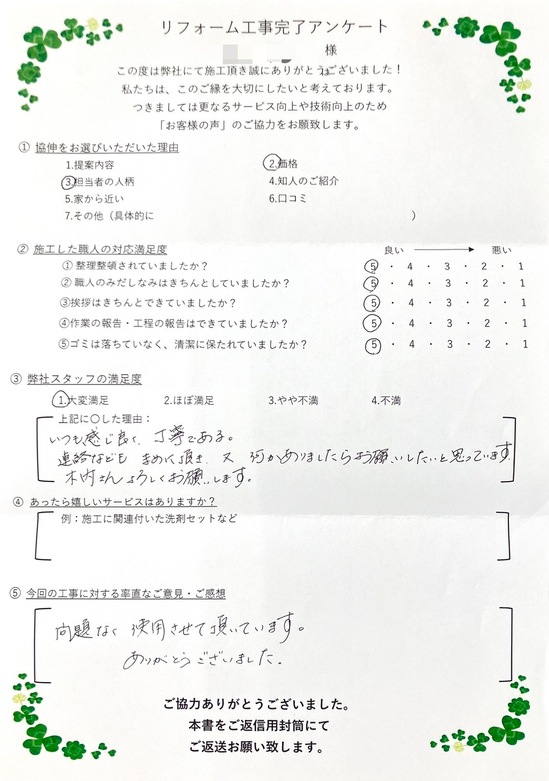 リフォーム工事完了アンケート
様
この度は弊社にて施工頂き誠にありがとうございました！
私たちは、このご縁を大切にしたいと考えております。
つきましては更なるサービス向上や技術向上のため
「お客様の声」のご協力をお願致します。
① 協伸をお選びいただいた理由
1.提案内容 2.価格
3.担当者の人柄 4.知人のご紹介
5.家から近い 6.口コミ
7.その他（具体的に ）
② 施工した職人の対応満足度 良い 悪い
①整理整頓されていましたか？ 5 ・ 4 ・ 3 ・ 2 ・ 1
②職人のみだしなみはきちんとしていましたか？ 5 ・ 4 ・ 3 ・ 2 ・ 1
③挨拶はきちんとできていましたか？ 5 ・ 4 ・ 3 ・ 2 ・ 1
④作業の報告・工程の報告はできていましたか？ 5 ・ 4 ・ 3 ・ 2 ・ 1
⑤ゴミは落ちていなく、清潔に保たれていましたか？ 5 ・ 4 ・ 3 ・ 2 ・ 1
③ 弊社スタッフの満足度
1.大変満足 2.ほぼ満足 3.やや不満 4.不満
上記に○した理由：
いつも感じ良く、丁寧である。
連絡なども まめに頂き、又 何かありましたらお願いしたいと思っています。
木内さんよろしくお願いします。
④ あったら嬉しいサービスはありますか？
例：施工に関連付いた洗剤セットなど
⑤ 今回の工事に対する率直なご意見・ご感想
問題なく 使用させて頂いています。
ありがとうございました.
ご協力ありがとうございました。
本書をご返信用封筒にて
ご返送お願い致します。